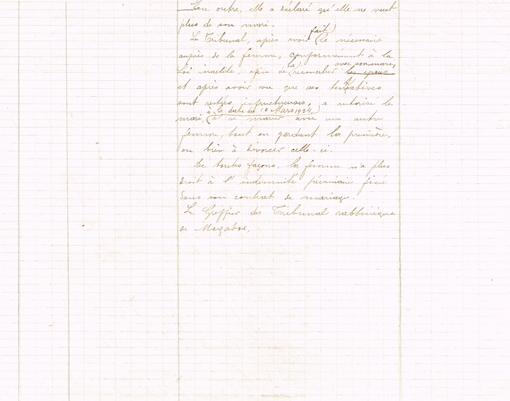 En outre, elle a déclaré qu'elle ne veut
plus de son mari.
Le Tribunal, après avoir fait le nécessaire
auprès de la femme, conformément à la
Loi israélite, afin de la remettre avec son mari,
et après avoir vu que ses tentatives
sont restées infructueuses, a autorisé le
mari, à la date du 10 Mars 1924, à se marier avec une autre
femme, tout en gardant la première,
ou bien à divorcer celle-ci.
De toutes façons, la femme n'a plus
droit à l'indemnité pécuniaire fixée
dans son contrat de mariage.
Le Greffier du Tribunal rabbinique
de Mogador,